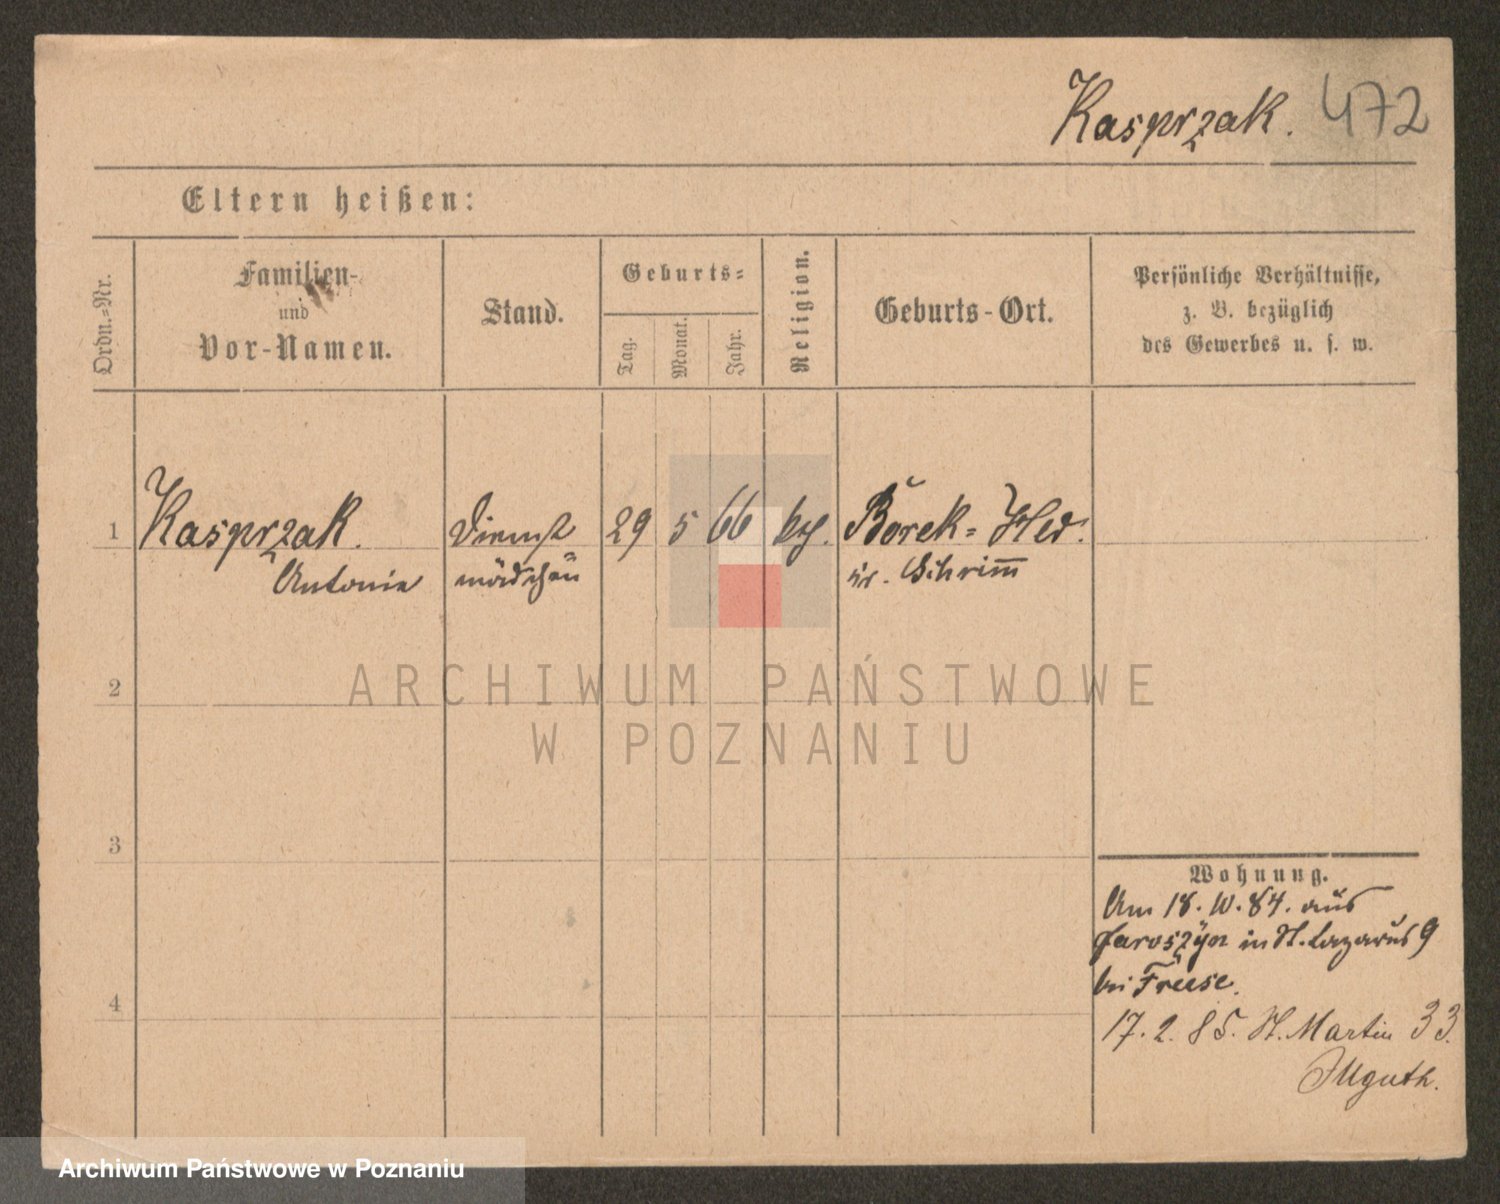 Kasprzak. 472
Eltern heißen:
Ordn.-Nr.
Familien-
und
Vor-Namen.
Stand.
Geburts-
Tag.
Monat.
Jahr.
Religion.
Geburts-Ort.
Persönliche Verhältnisse,
z. B. bezüglich
des Gewerbes u. s. w.
1 Kasprzak. Dienst 29 5 66 Borek-
Antonie mädchen Schrimm
2
3
4
Wohnung.
Am 18. 84. aus
Jaroszyn in St. Lazarus 9
bei Freese.
17. 2. 85. St. Martin 33.
ARCHIWUM PAŃSTWOWE
W POZNANIU
Archiwum Państwowe w Poznaniu